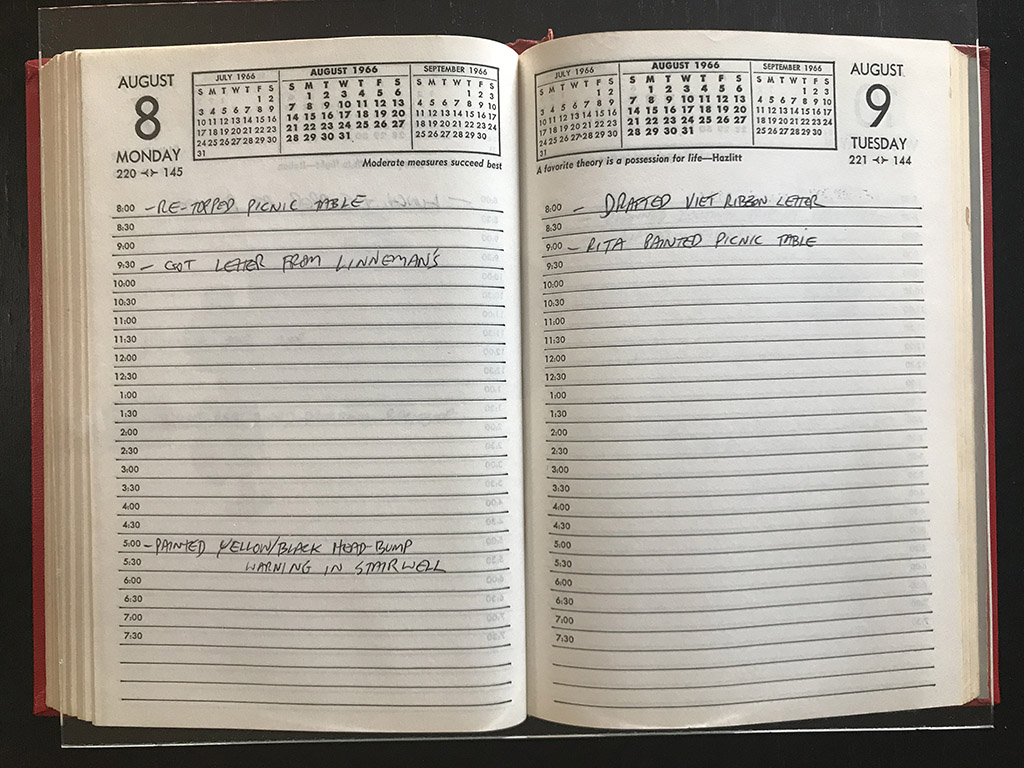 AUGUST
8
MONDAY
220 145
JULY 1966
S M T W T F S
1 2
3 4 5 6 7 8 9
10 11 12 13 14 15 16
17 18 19 20 21 22 23
24 25 26 27 28 29 30
31
AUGUST 1966
S M T W T F S
1 2 3 4 5 6
7 8 9 10 11 12 13
14 15 16 17 18 19 20
21 22 23 24 25 26 27
28 29 30 31
SEPTEMBER 1966
S M T W T F S
1 2 3
4 5 6 7 8 9 10
11 12 13 14 15 16 17
18 19 20 21 22 23 24
25 26 27 28 29 30
Moderate measures succeed best
8:00 - RE-TOPPED PICNIC TABLE
8:30
9:00
9:30 - GOT LETTER FROM LINNEMAN'S
10:00
10:30
11:00
11:30
12:00
12:30
1:00
1:30
2:00
2:30
3:00
3:30
4:00
4:30
5:00 - PAINTED YELLOW/BLACK HEAD-BUMP
5:30 WARNING IN STAIRWELL
6:00
6:30
7:00
7:30
JULY 1966
S M T W T F S
1 2
3 4 5 6 7 8 9
10 11 12 13 14 15 16
17 18 19 20 21 22 23
24 25 26 27 28 29 30
31
AUGUST 1966
S M T W T F S
1 2 3 4 5 6
7 8 9 10 11 12 13
14 15 16 17 18 19 20
21 22 23 24 25 26 27
28 29 30 31
SEPTEMBER 1966
S M T W T F S
1 2 3
4 5 6 7 8 9 10
11 12 13 14 15 16 17
18 19 20 21 22 23 24
25 26 27 28 29 30
AUGUST
9
TUESDAY
221 144
A favorite theory is a possession for life—Hazlitt
8:00 - DRAFTED VIET RIBBON LETTER
8:30
9:00 - RITA PAINTED PICNIC TABLE
9:30
10:00
10:30
11:00
11:30
12:00
12:30
1:00
1:30
2:00
2:30
3:00
3:30
4:00
4:30
5:00
5:30
6:00
6:30
7:00
7:30